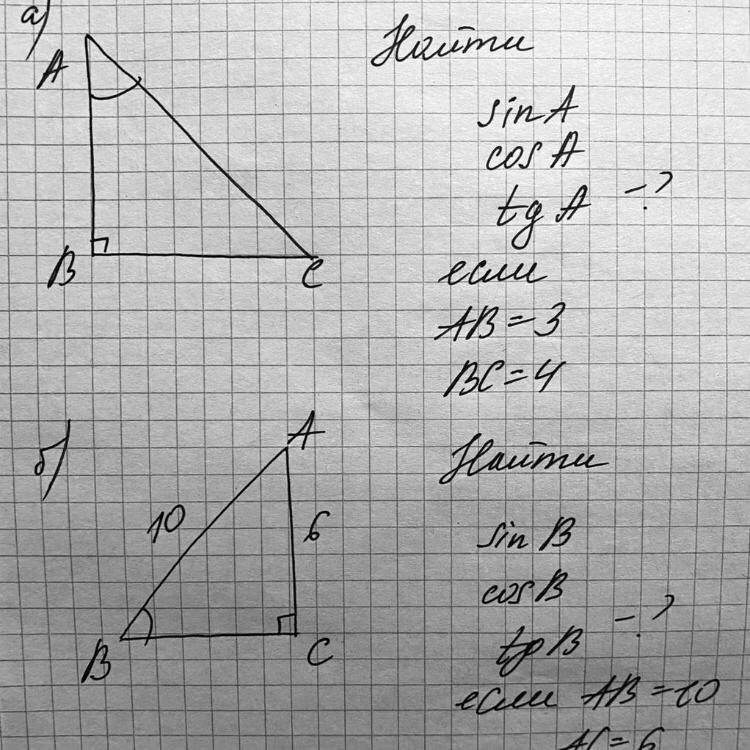 а)
A
B
C
Найти
sin A
cos A
tg A - ?
если
AB = 3
BC = 4
б)
A
10
6
B
C
Найти
sin B
cos B
tg B - ?
если AB = 10
AC = 6